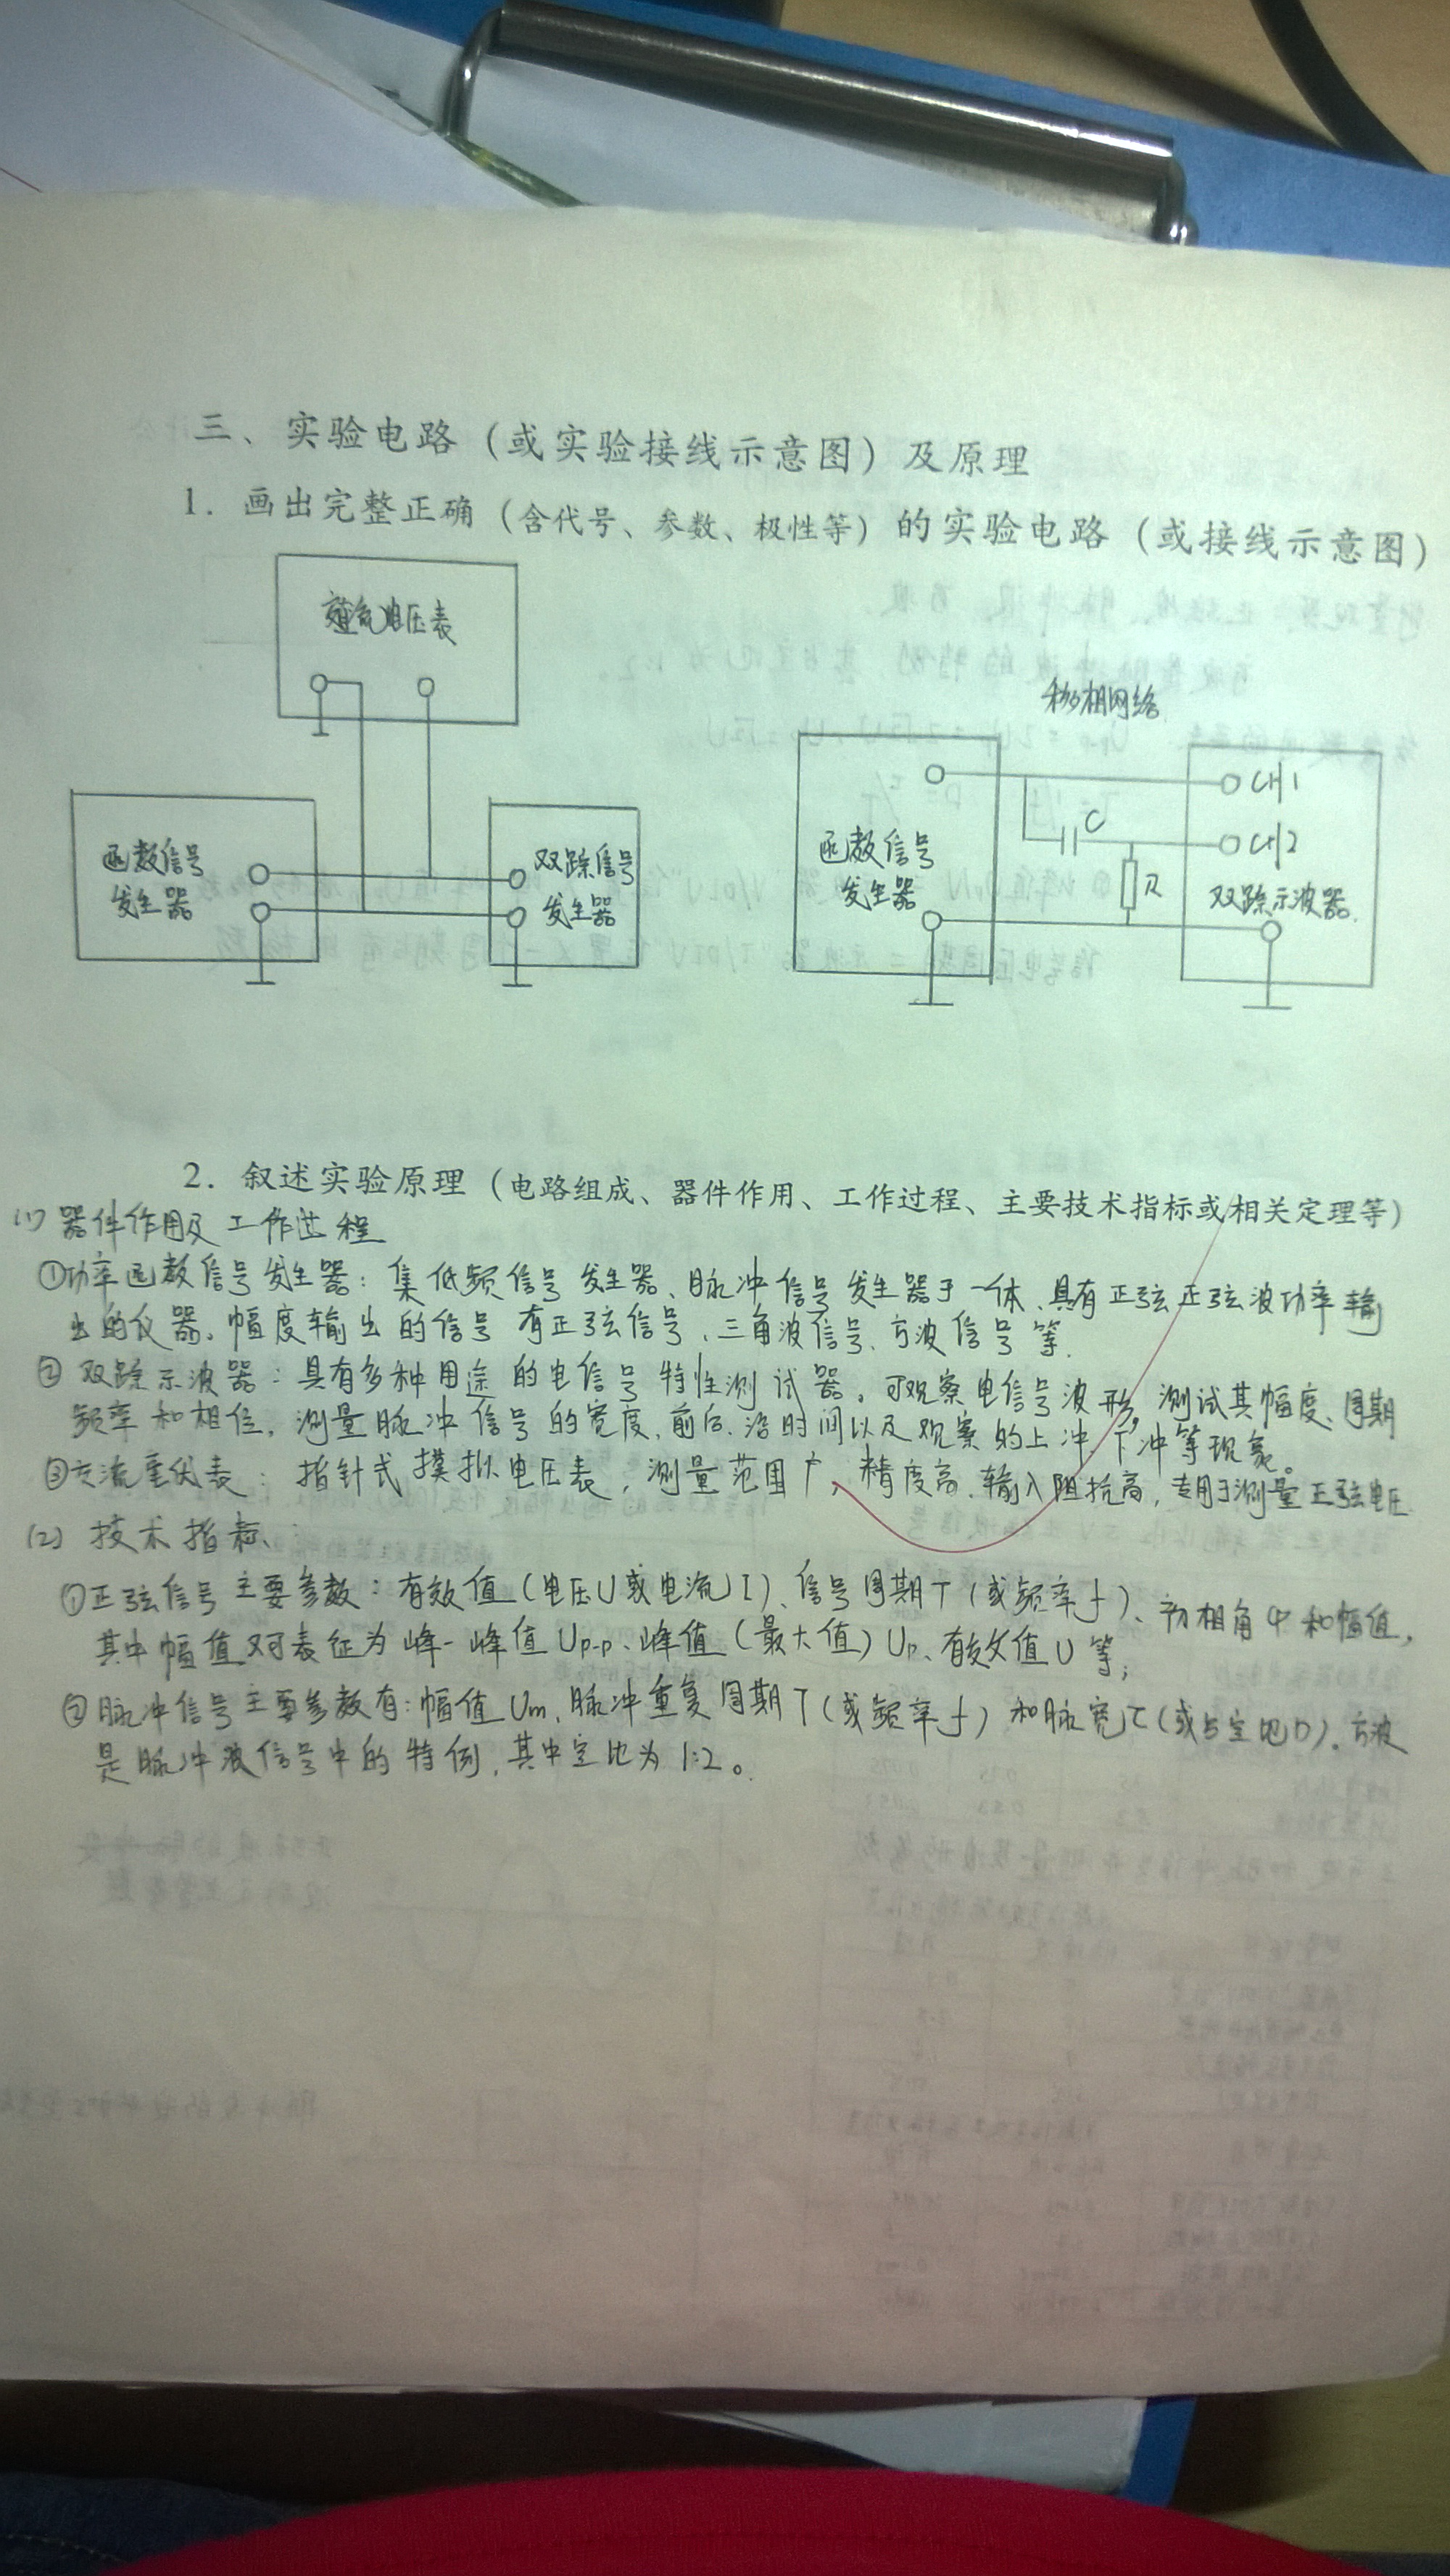 三、实验电路（或实验接线示意图）及原理
1. 画出完整正确（含代号、参数、极性等）的实验电路（或接线示意图）
电压表
函数信号
发生器
双踪信号
发生器
移相网络
函数信号
发生器
C
R
CH1
CH2
双踪示波器.
2. 叙述实验原理（电路组成、器件作用、工作过程、主要技术指标或相关定理等）
(1) 器件作用及工作过程
①功率函数信号发生器：集低频信号发生器、脉冲信号发生器于一体、具有正弦正弦波功率输
出的仪器。幅度输出的信号有正弦信号、三角波信号、方波信号等.
② 双踪示波器：具有多种用途的电信号特性测试器。可观察电信号波形，测试其幅度、周期
频率和相位，测量脉冲信号的宽度、前后沿时间以及观察的上冲、下冲等现象。
③交流毫伏表：指针式模拟电压表，测量范围广，精度高、输入阻抗高，专用于测量正弦电压
(2) 技术指标、
①正弦信号主要参数：有效值（电压U或电流I）、信号周期T（或频率f）、初相角φ和幅值，
其中幅值又可表征为峰-峰值Up-p、峰值（最大值）Up、有效值U等；
②脉冲信号主要参数有：幅值Um、脉冲重复周期T（或频率f）和脉宽τ（或占空比D）。方波
是脉冲波信号中的特例，其中空比为1:2。